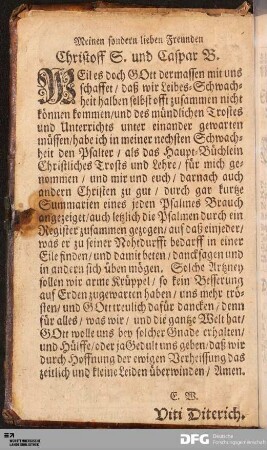 Meinen sondern lieben Freunden
Christoff S. und Caspar B.
WEil es doch GOtt dermassen mit uns
schaffet / daß wir Leibes-Schwach-
heit halben selbst offt zusammen nicht
können kommen / und des mündlichen Trostes
und Unterrichts unter einander gewarten
müssen / habe ich in meiner nechsten Schwach-
heit den Psalter / als das Haupt-Büchlein
Christliches Trosts und Lehre / für mich ge-
nommen / und mir und euch / darnach auch
andern Christen zu gut / durch gar kurtze
Summarien eines jeden Psalmes Brauch
angezeiget / auch letzlich die Psalmen durch ein
Register zusammen gezogen / auf daß ein jeder /
was er zu seiner Nohtdurfft bedarff in einer
Eile finden / und damit beten / dancksagen und
in andern sich üben mögen. Solche Artzney
sollen wir arme Krüppel / so kein Besserung
auf Erden zugewarten haben / uns mehr trö-
sten / und GOtt treulich dafür dancken / denn
für alles / was wir / und die gantze Welt hat /
GOtt wolle uns bey solcher Gnade erhalten /
und Hülffe / oder ja Gedult uns geben / daß wir
durch Hoffnung der ewigen Verheissung das
zeitlich und kleine Leiden überwinden / Amen.
E. W.
Viti Diterich.
DFG
Deutsche
Forschungsgemeinschaft